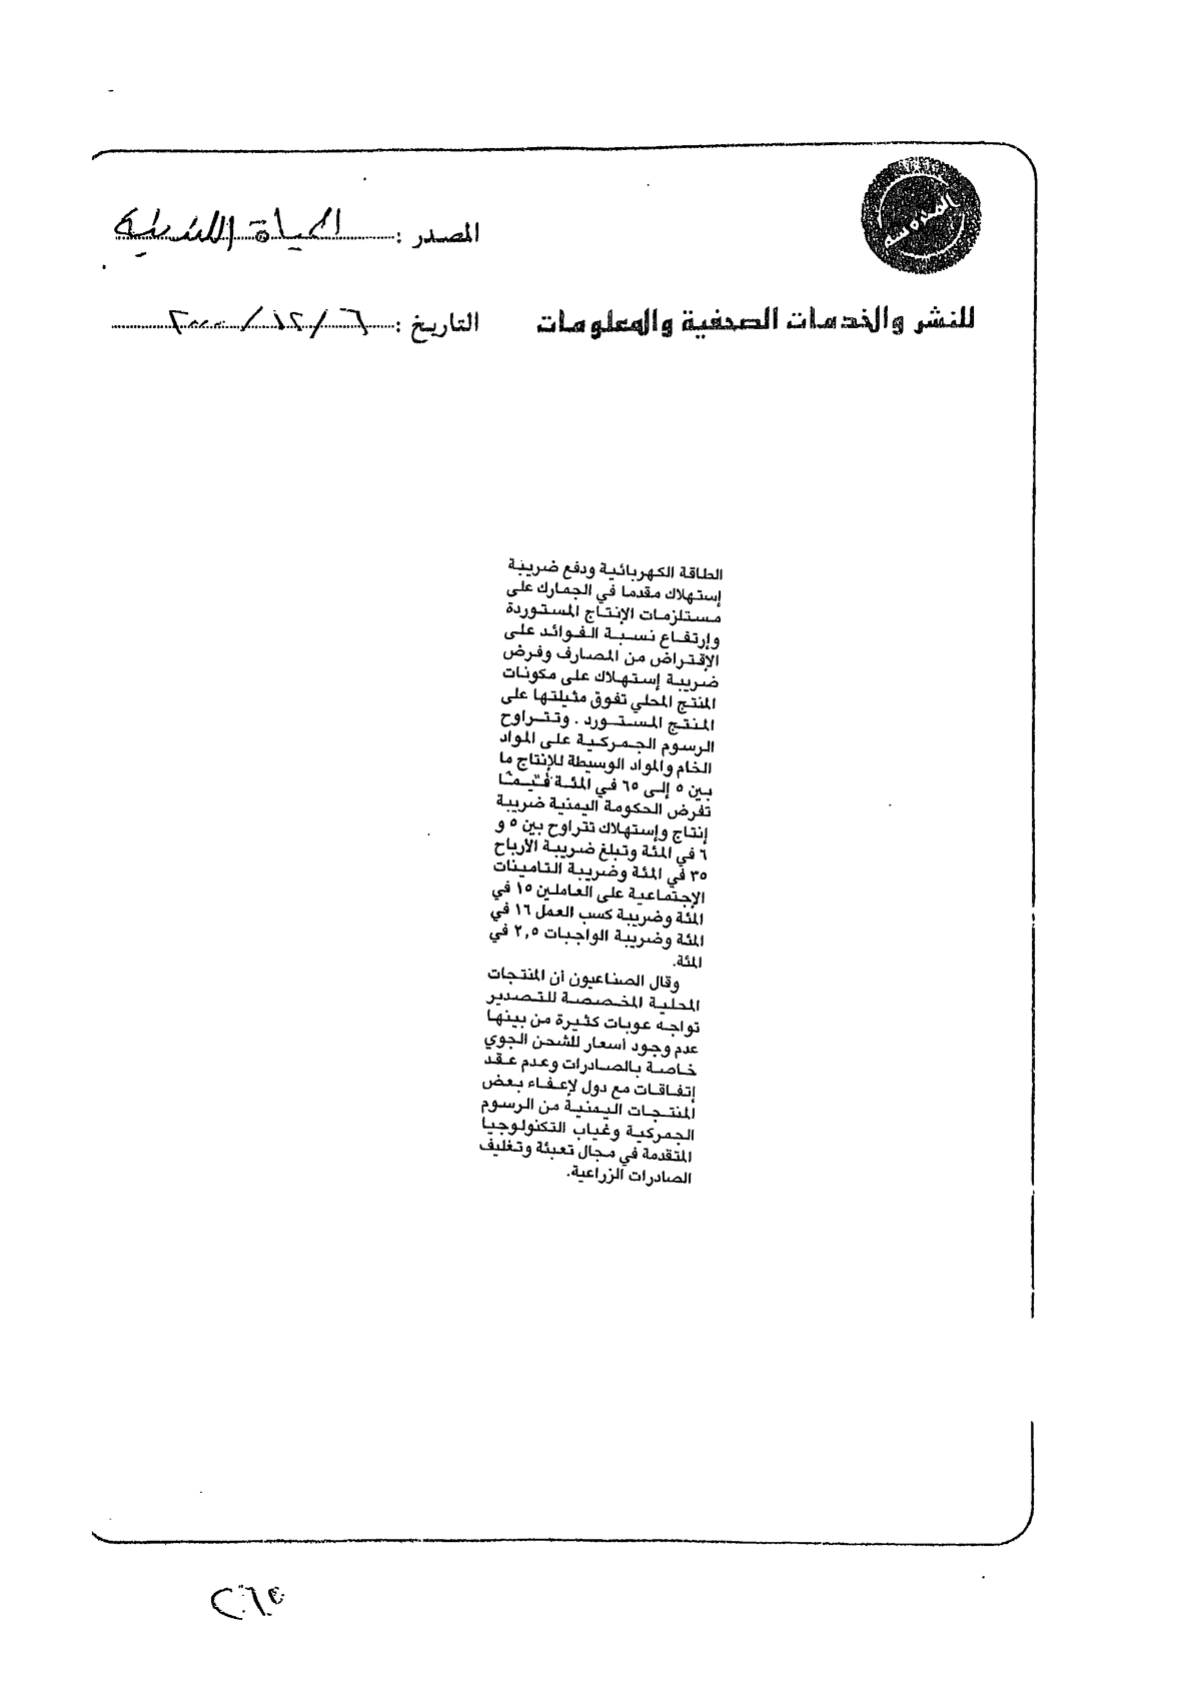 المصدر : الحياة اللندنية
للنشر والخدمات الصحفية والمعلومات
التاريخ : ٦ / ١٢ / ٢٠٠٠
الطاقة الكهربائية ودفع ضريبة
إستهلاك مقدما في الجمارك على
مستلزمات الإنتاج المستوردة
وإرتفاع نسبة الفوائد على
الإقتراض من المصارف وفرض
ضريبة إستهلاك على مكونات
المنتج المحلي تفوق مثيلتها على
المنتج المستورد . وتتراوح
الرسوم الجمركية على المواد
الخام والمواد الوسيطة للإنتاج ما
بين ٥ إلى ٦٥ في المئة فيما
تفرض الحكومة اليمنية ضريبة
إنتاج وإستهلاك تتراوح بين ٥ و
٦ في المئة وتبلغ ضريبة الأرباح
٣٥ في المئة وضريبة التامينات
الإجتماعية على العاملين ١٥ في
المئة وضريبة كسب العمل ١٦ في
المئة وضريبة الواجبات ٢,٥ في
المئة.
وقال الصناعيون أن المنتجات
المحلية المخصصة للتصدير
تواجه عوبات كثيرة من بينها
عدم وجود أسعار للشحن الجوي
خاصة بالصادرات وعدم عقد
إتفاقات مع دول لإعفاء بعض
المنتجات اليمنية من الرسوم
الجمركية وغياب التكنولوجيا
المتقدمة في مجال تعبئة وتغليف
الصادرات الزراعية.